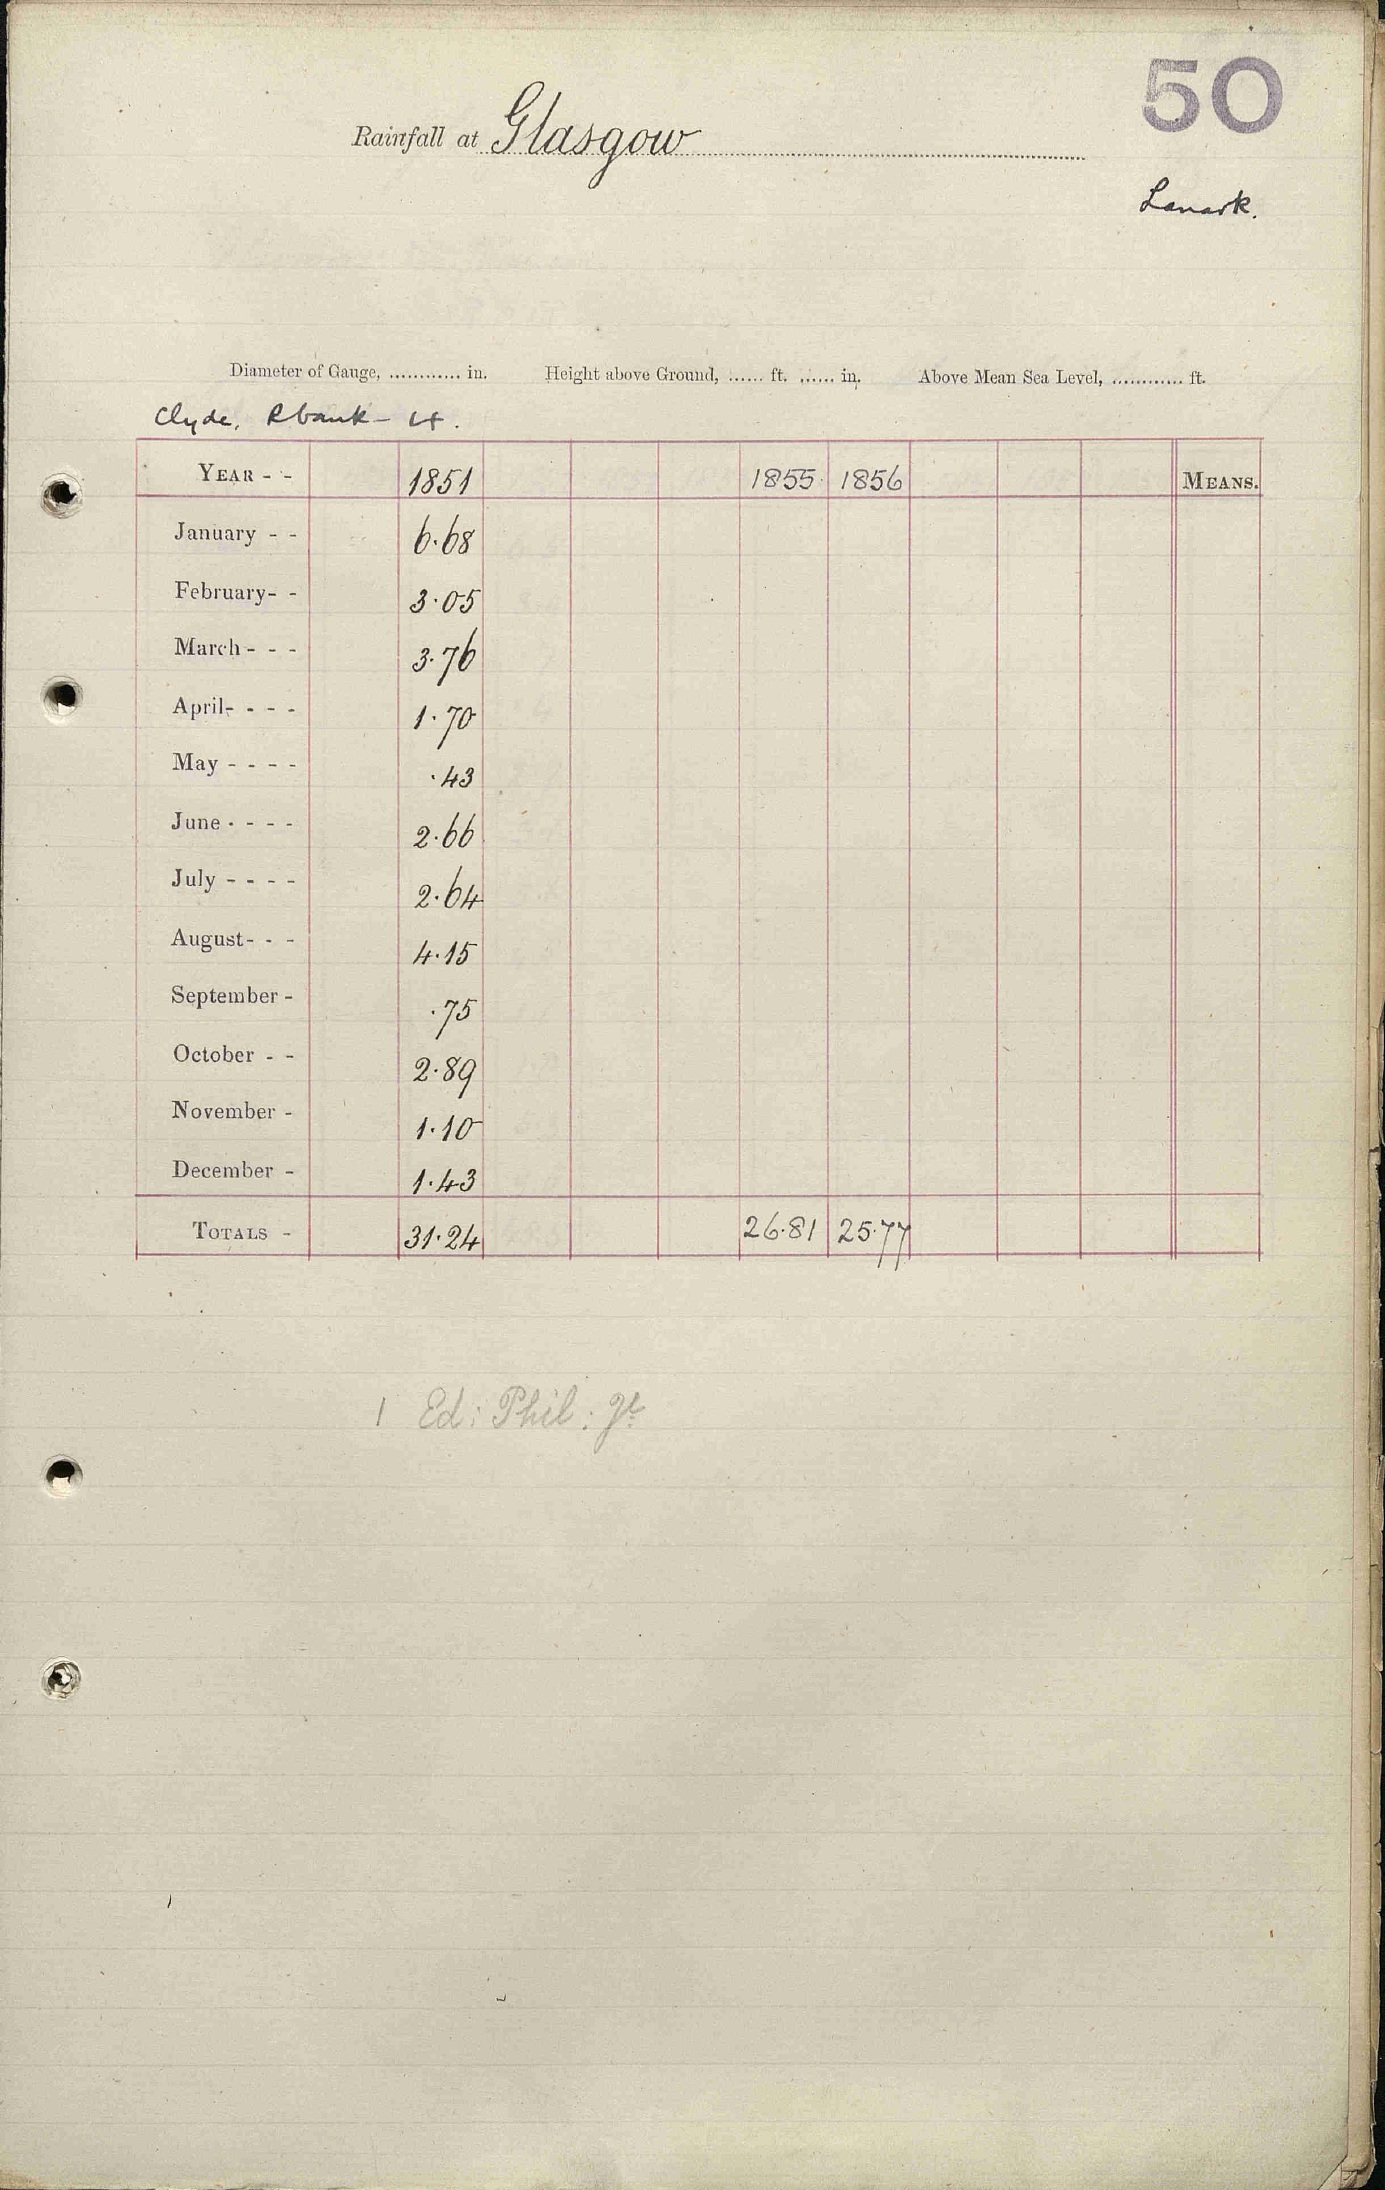 50
Rainfall at Glasgow
Lanark.
Diameter of Gauge, ............ in. Height above Ground, ...... ft. ...... in. Above Mean Sea Level, ............ ft.
Clyde. Rbank - 4.
YEAR - - 1851 1855 1856 MEANS.
January - - 6.68
February- - 3.05
March - - - 3.76
April- - - - 1.70
May - - - - .43
June - - - - 2.66
July - - - - 2.64
August- - - 4.15
September - .75
October - - 2.89
November - 1.10
December - 1.43
TOTALS - 31.24 26.81 25.77
1 Ed: Phil: Jl